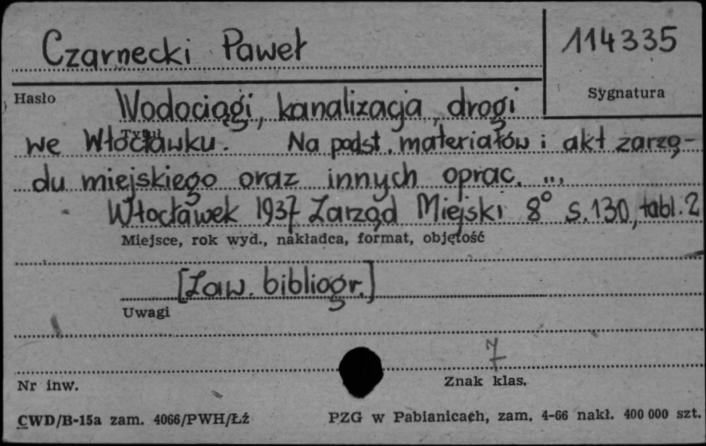 Czarnecki Paweł
114335
Hasło
Sygnatura
Wodociągi, kanalizacja, drogi
we Włocławku. Na podst. materiałów i akt zarzą-
Tytuł
du miejskiego oraz innych oprac. ...
Włocławek 1937 Zarząd Miejski 8° s. 130, tabl. 2
Miejsce, rok wyd., nakładca, format, objętość
[Zaw. bibliogr.]
Uwagi
7
Nr inw.
Znak klas.
CWD/B-15a zam. 4066/PWH/Łź
PZG w Pabianicach, zam. 4-66 nakł. 400 000 szt.